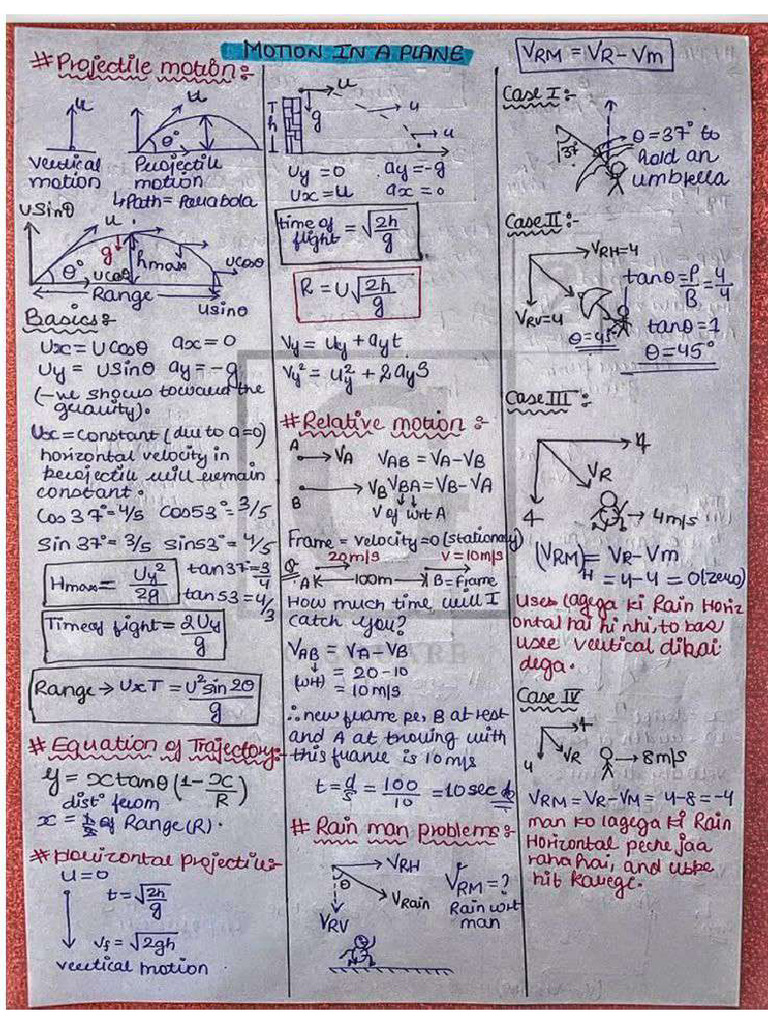 MOTION IN A PLANE
# Projectile motion :-
u
u
θ°
vertical motion
Projectile motion
↳Path = Parabola
usinθ
u
g
θ°
ucosθ
hmax
ucosθ
usinθ
Range
Basics :-
Ux = Ucosθ ax = 0
Uy = Usinθ ay = -g
(-ve shows toward the
gravity).
Ux = constant (due to a=0)
horizontal velocity in
projectile will remain
constant.
Cos 37° = 4/5 Cos53° = 3/5
Sin 37° = 3/5 Sin53° = 4/5
Hmax = Uy²/2g
tan 37 = 3/4
tan 53 = 4/3
Time of flight = 2Uy/g
Range → Ux T = U² sin 2θ/g
# Equation of Trajectory:-
y = x tanθ (1 - x/R)
distⁿ from
x = of Range (R).
# Horizontal projectile:-
u = 0
t = √2h/g
vf = √2gh
vertical motion
u
h
g
u
u
Uy = 0 ay = -g
Ux = u ax = 0
time of flight = √2h/g
R = U√2h/g
Vy = uy + ayt
Vy² = uy² + 2ayS
# Relative motion :-
A
→ VA VAB = VA - VB
B
→ VB VBA = VB - VA
V of wrt A
Frame = velocity = 0 (stationary)
Q
20m/s V = 10m/s
A 100m B = Frame
How much time will I
catch you?
VAB = VA - VB
(wrt) = 20 - 10
= 10 m/s
∴ new frame pe, B at rest
and A at moving with
this frame is 10 m/s
t = d/s = 100/10 = 10 sec
# Rain man problems :-
VRH
θ
VRain
VRV
VRM = ?
Rain wrt
man
VRM = VR - Vm
Case I :-
37
θ = 37° to
hold an
umbrella
Case II :-
VRH = 4
VRV = 4
θ = 45°
tanθ = P/B = 4/4
tanθ = 1
θ = 45°
Case III :-
4
VR
4
→ 4m/s
(VRM)H = VR - Vm
= 4 - 4 = 0 (zero)
Usee lagega ki Rain Horiz
ontal hai hi nhi, to bas
usee vertical dikai
dega.
Case IV
4
4
VR
→ 8m/s
VRM = VR - VM = 4 - 8 = -4
man ko lagega ki Rain
Horizontal peche jaa
raha hai, and uske
hit karege.